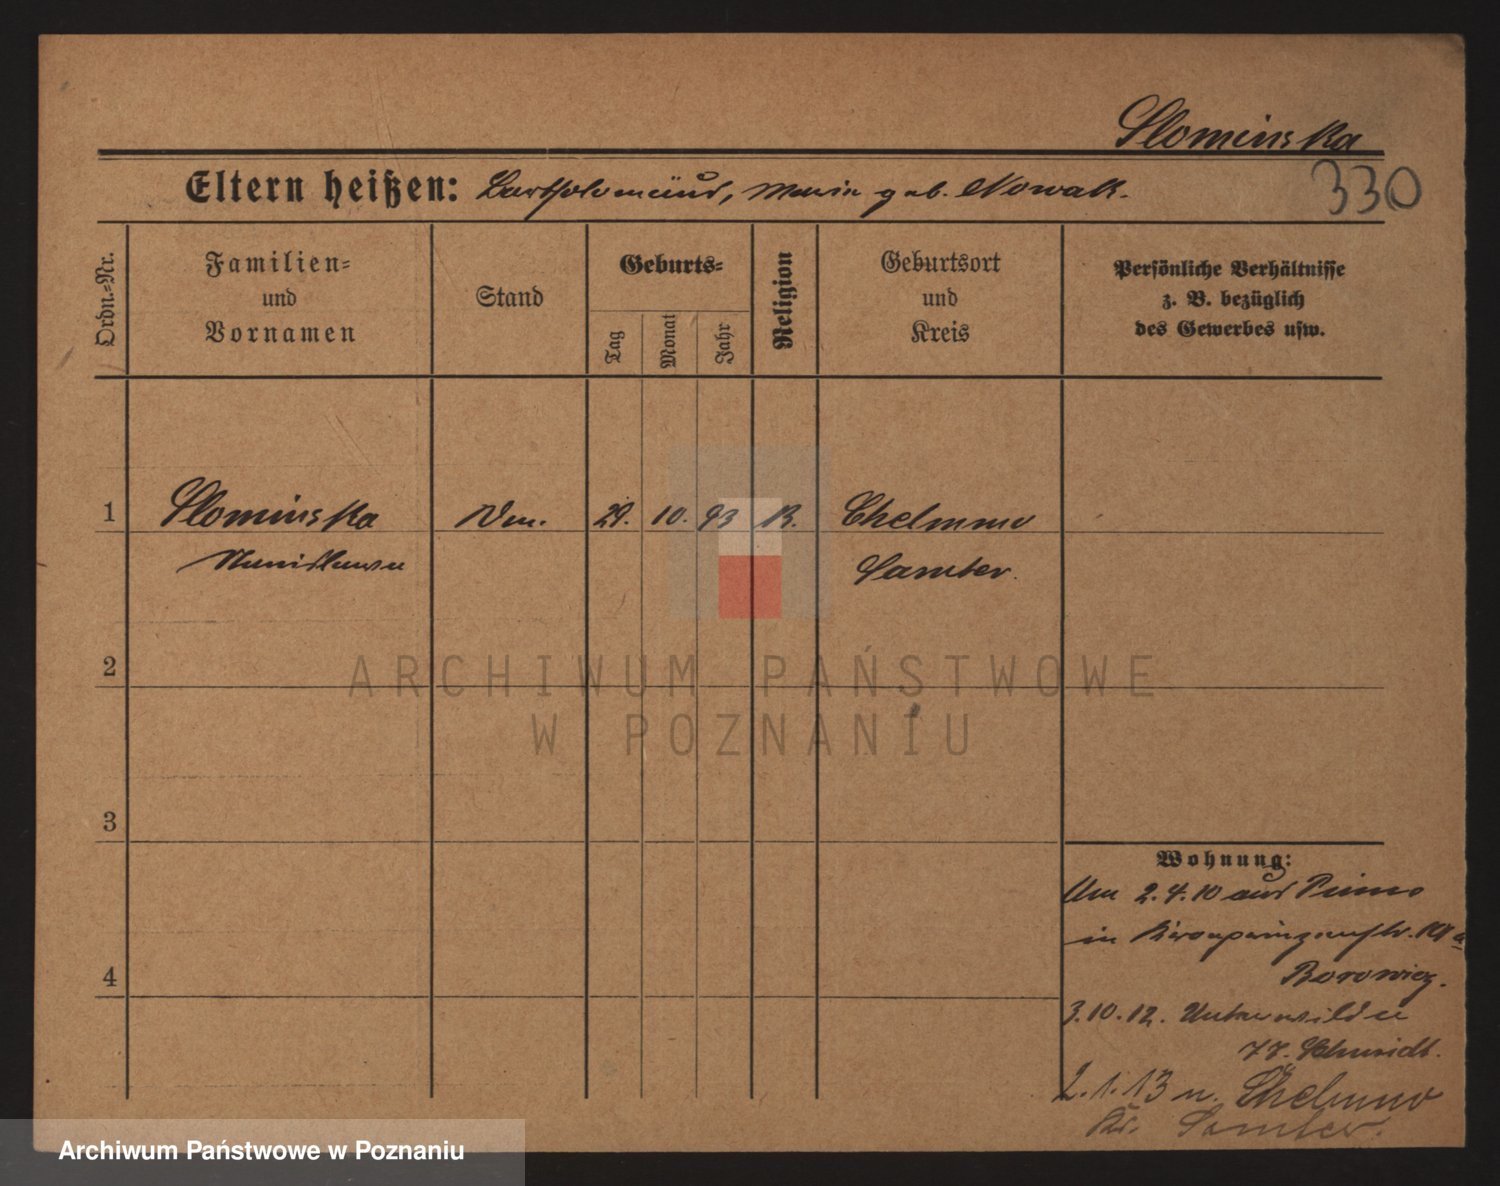 Slominska
330
Eltern heißen: Bartholomäus, Maria geb. Nowak.
Ordn.-Nr.
Familien- und Vornamen
Stand
Geburts-
Tag
Monat
Jahr
Religion
Geburtsort und Kreis
Persönliche Verhältnisse z. B. bezüglich des Gewerbes usw.
1 Slominska 29. 10. 93 K. Chelmno
Stanislawa Samter.
2
ARCHIWUM PAŃSTWOWE
W POZNANIU
3
Wohnung:
2.4.10 aus
in Kronprinzenstr.
4
Borowicz.
3.10.12. Unterwilda
77. Schmidt.
2.1.13 n. Chelmno
Kr. Samter.
Archiwum Państwowe w Poznaniu